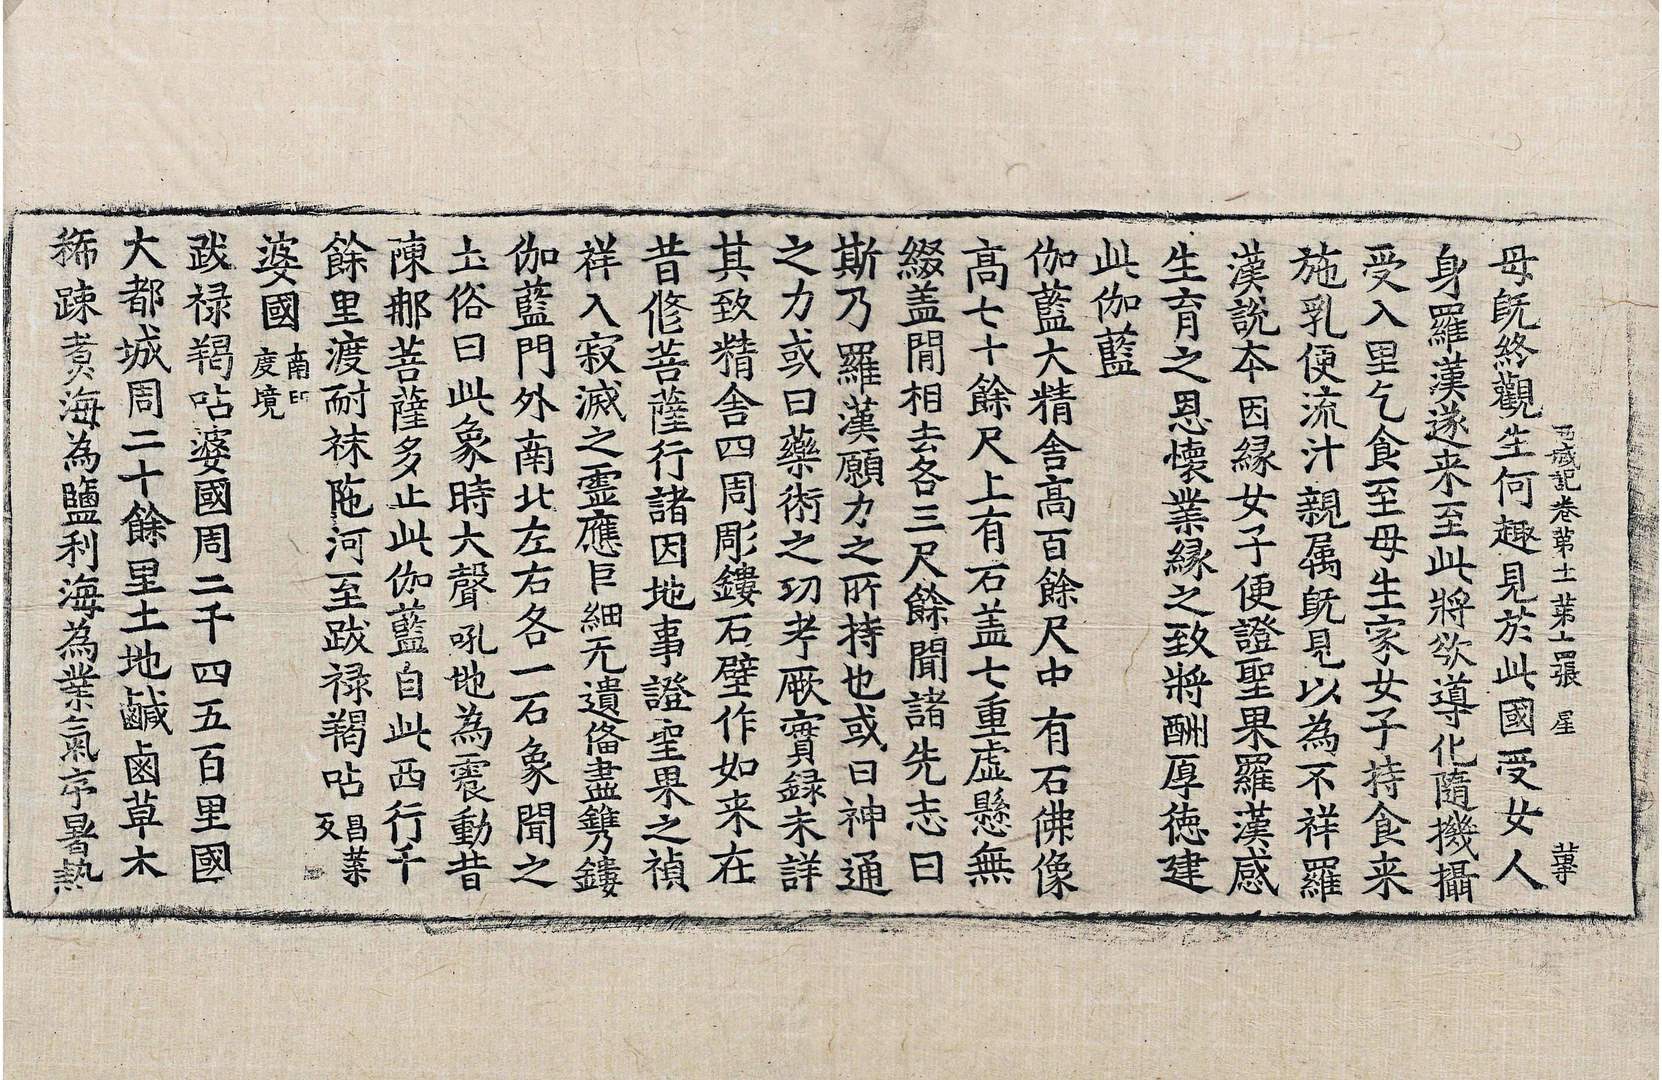 西域記卷第十一 第十四張 星
母旣終觀生何趣見於此國受女人
身羅漢遂来至此將欲導化隨機攝
受入里乞食至母生家女子持食来
施乳便流汁親属旣見以為不祥羅
漢說本因緣女子便證聖果羅漢感
生育之恩懷業緣之致將酬厚德建
此伽藍
伽藍大精舍高百餘尺中有石佛像
高七十餘尺上有石盖七重虛懸無
綴盖閒相去各三尺餘聞諸先志曰
斯乃羅漢願力之所持也或曰神通
之力或曰藥術之功考厥實録未詳
其致精舍四周彫鏤石壁作如来在
昔修菩薩行諸因地事證聖果之禎
祥入寂滅之靈應巨細无遺俻盡鐫鏤
伽藍門外南北左右各一石象聞之
土俗曰此象時大聲吼地為震動昔
陳那菩薩多止此伽藍自此西行千
餘里渡耐袜陁河至跋禄羯呫昌葉反
婆國南印度境
跋禄羯呫婆國周二千四五百里國
大都城周二十餘里土地鹹鹵草木
稀踈煑海為鹽利海為業氣序暑熱